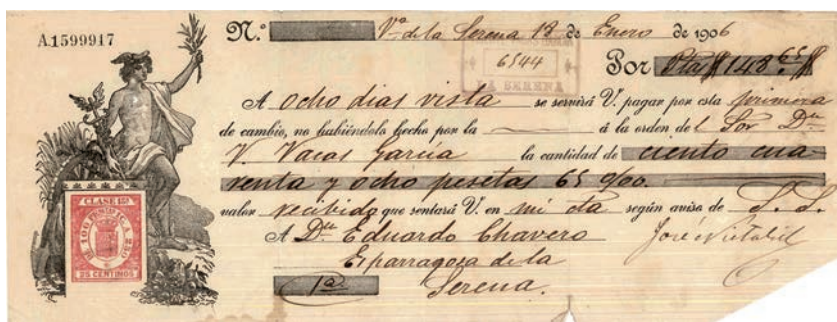 A.1599917
N.º Vª de la Serena 13 de Enero de 1906
6544
LA SERENA
Por Ptas 148,65
A ocho dias vista se servirá V. pagar por esta primera
de cambio, no habiéndola hecho por la á la orden del Sor Dn
V. Vacas Garcia la cantidad de ciento cua-
renta y ocho pesetas 65 0/00.
valor recibido que sentará V. en mi cta según aviso de S. S.
A Dn Eduardo Chavero
Esparragosa de la
1ª Serena.
CLASE 12ª
25 CENTIMOS